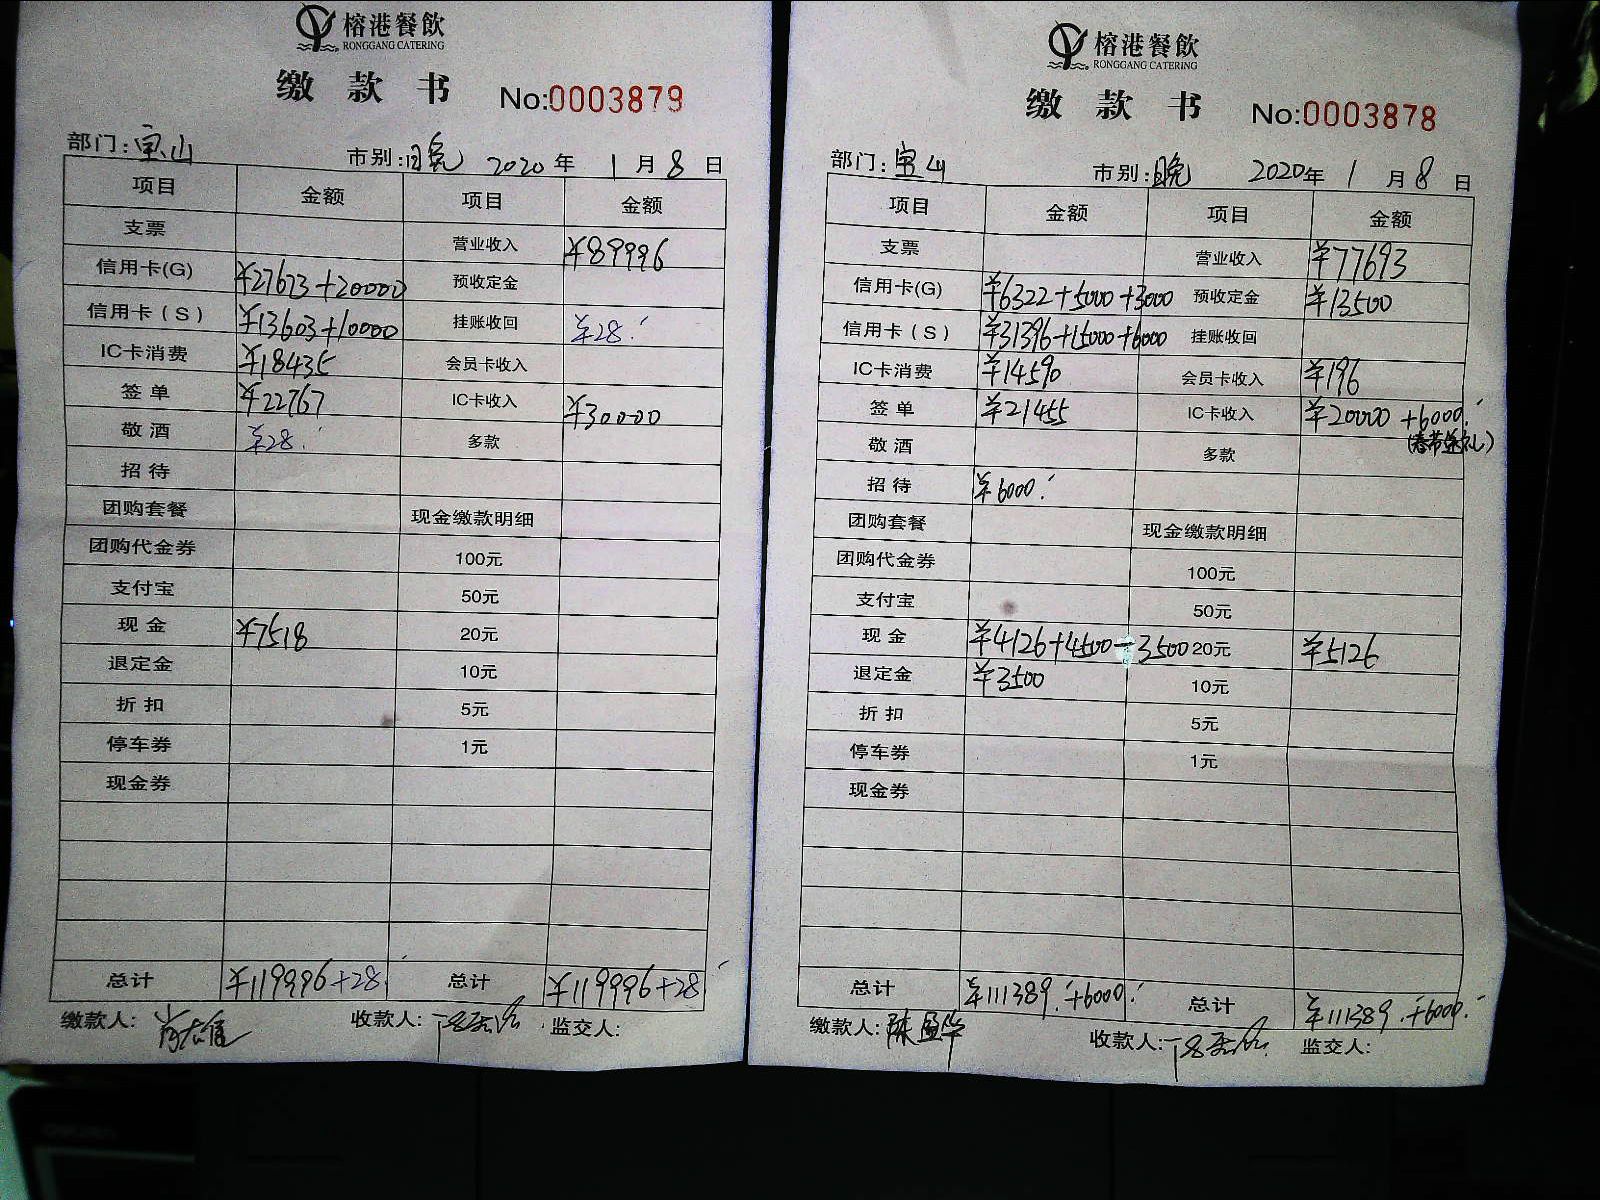 榕港餐飲
RONGGANG CATERING
缴款书 No:0003879
部门: 宝山 市别: 晚 2020年 1月 8日
项目 金额 项目 金额
支票 营业收入 ¥89996
信用卡(G) ¥27673+20000 预收定金
信用卡(S) ¥13603+10000 挂账收回 ¥28.
IC卡消费 ¥18435 会员卡收入
签单 ¥22767 IC卡收入 ¥30000
敬酒 ¥28. 多款
招待
团购套餐 现金缴款明细
团购代金券 100元
支付宝 50元
现金 ¥7518 20元
退定金 10元
折扣 5元
停车券 1元
现金券
总计 ¥119996+28 总计 ¥119996+28
缴款人: 收款人: 监交人:
榕港餐飲
RONGGANG CATERING
缴款书 No:0003878
部门: 宝山 市别: 晚 2020年 1月 8日
项目 金额 项目 金额
支票 营业收入 ¥77693
信用卡(G) ¥6322+5000+3000 预收定金 ¥13500
信用卡(S) ¥31396+15000+6000 挂账收回
IC卡消费 ¥14590 会员卡收入 ¥196
签单 ¥21455 IC卡收入 ¥20000+6000.
(春节送礼)
敬酒 多款
招待 ¥6000.
团购套餐 现金缴款明细
团购代金券 100元
支付宝 50元
现金 ¥4126+4500-3500 20元 ¥5126
退定金 ¥3500 10元
折扣 5元
停车券 1元
现金券
总计 ¥111389.+6000. 总计 ¥111389.+6000.
缴款人: 陈 收款人: 监交人: